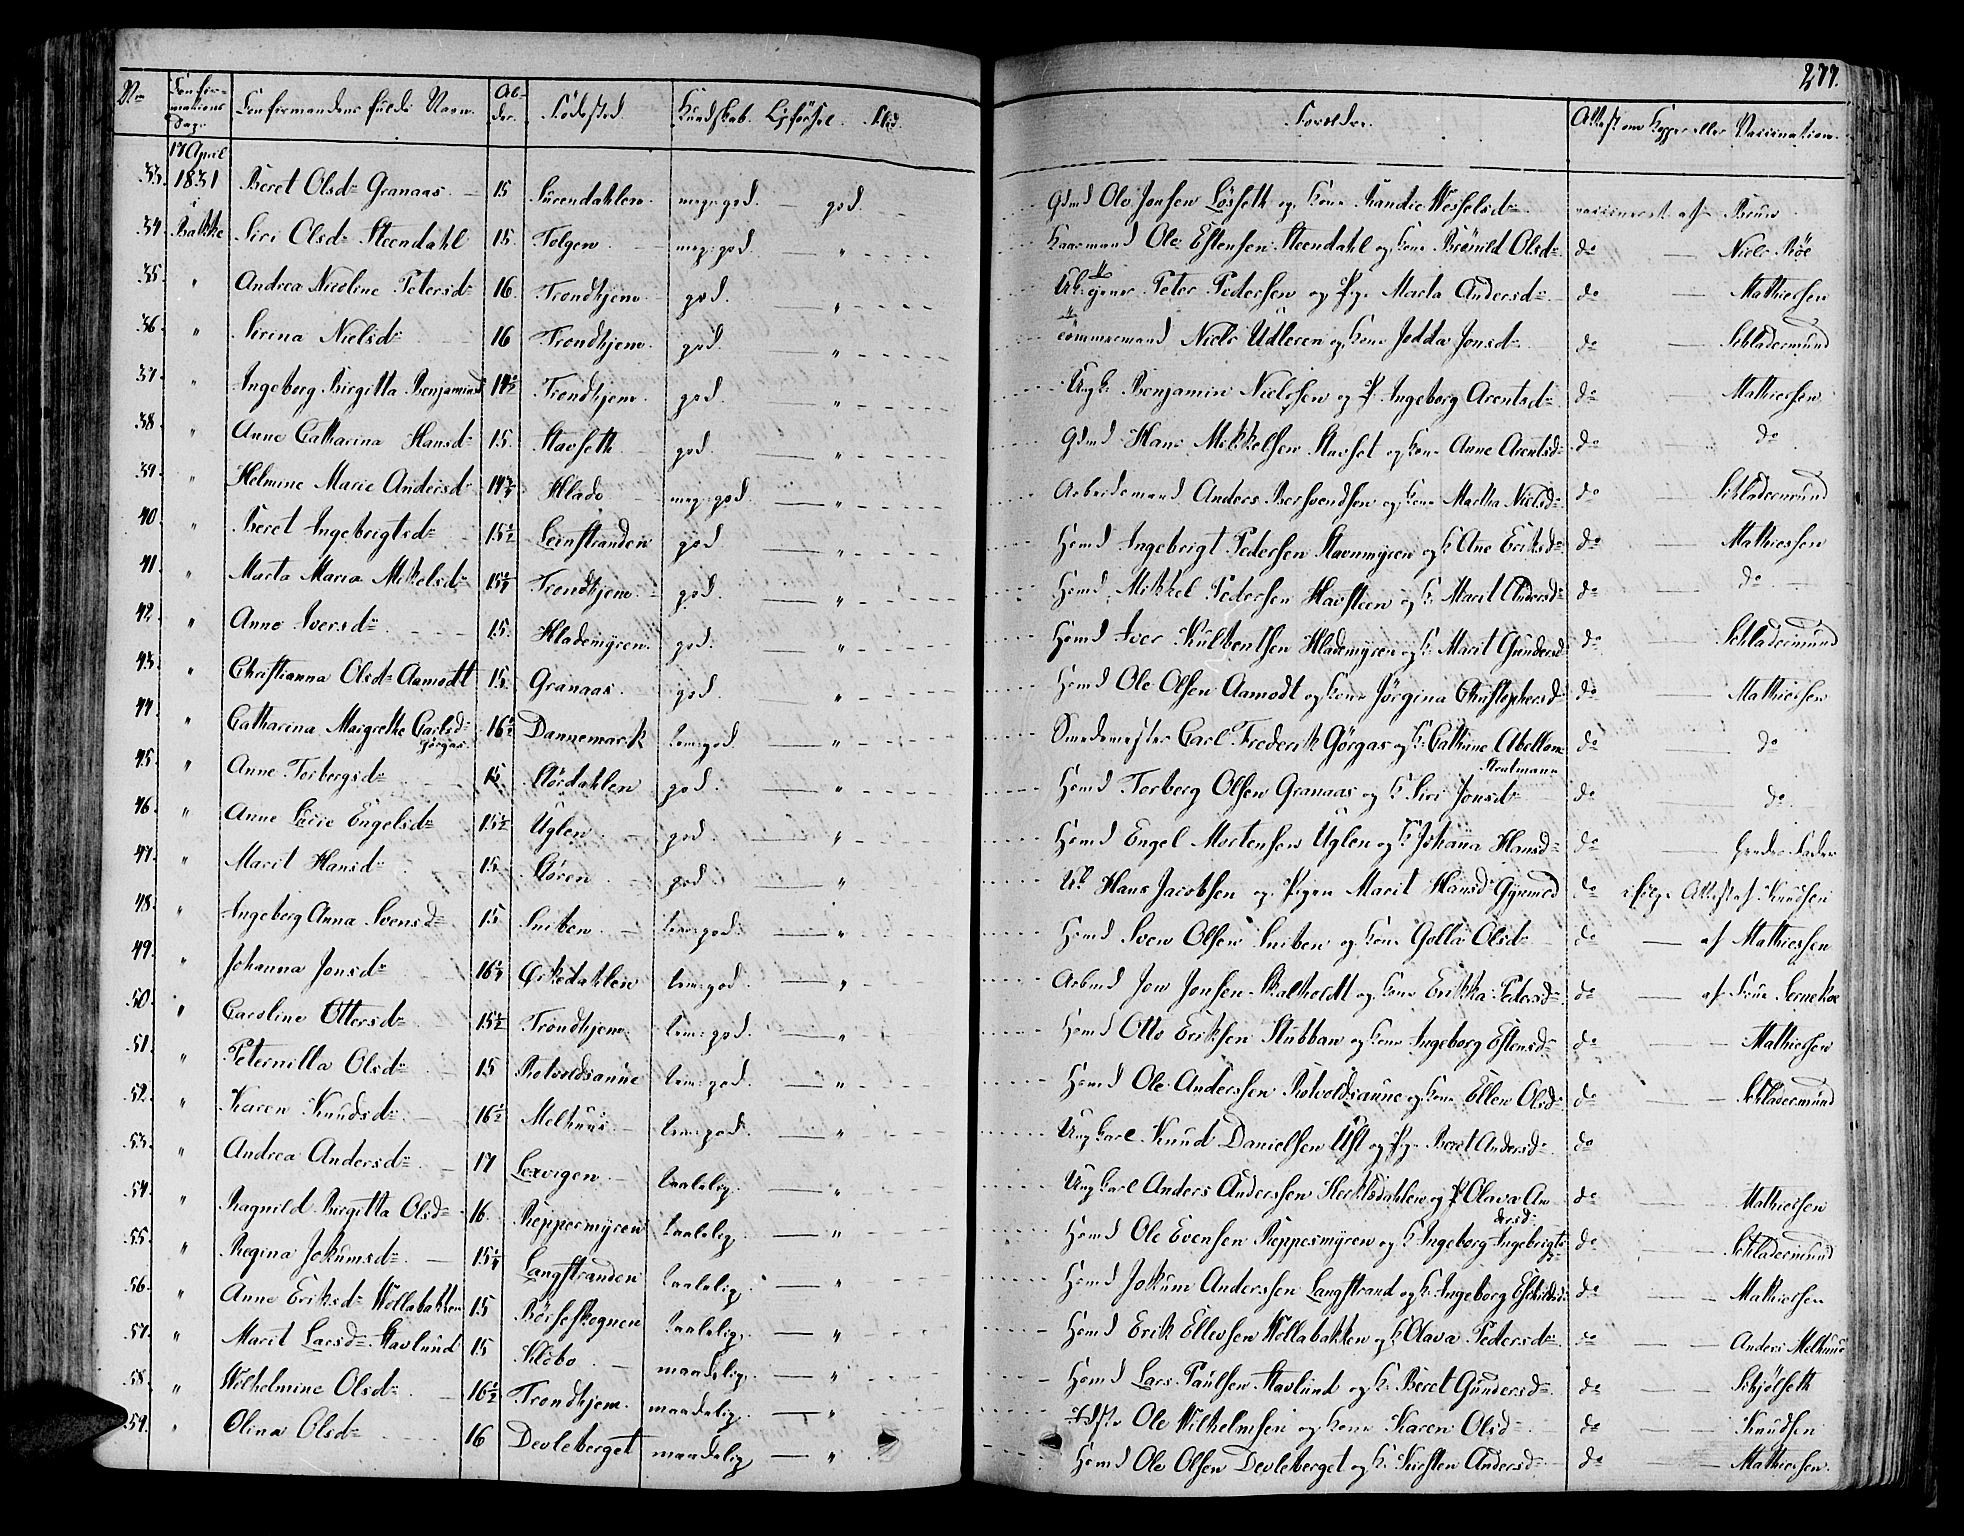 277.
No Confirmations Dag. Confirmandens fulde Navn. Alder. Fødested. Kundskab. Flid. Forældre. Attest om Kopper eller Vaccination.
17 April
33. 1831 Beret Olsdr Granaas 15 Surendahlen meg: god. god. Gdmd Ole Jonsen Løseth og Kone Wesselsdr vaccineret af Bruun
34. i Bakke Siri Olsdr Steendahl 15 Tolgen meg: god. " Ole Estensen Steendahl og Kone Brønild Olsdr do Niels Röe
35. " Andrea Nicoline Petersdr 16 Trondhjem god. " Peter Pedersen og Pge Marta Andersdr do Mathiessen
36. " Sirina Nielsdr 16 Trondhjem god. " Tømmermand Niels Udleren og Kone Jedda Jonsdr do Schladermund
37. " Ingeborg Birgitta Benjaminsd 14½ Trondhjem god. " Ungk Benjamin Nielssen og P Ingeborg Arentsdr do Mathiessen
38. " Anne Catharina Hansdr 15. Stavseth god " Gdmd Hans Mikkelsen Stavset og Kone Anne Arentsdr do do
39. " Helmine Marie Andersdr 14¾ Hlade meg: god " Arbeidsmand Anders Bersvendsen og Kone Martha Nielsdr do Schladermund
40. " Beret Ingebrigtsdr 15½ Leinstranden god " Hsmd Ingebrigt Pedersen Stavnmyren og K Ane Eriksdr do Mathiessen
41. " Marta Maria Mikelsdr 15¼ Trondhjem god. " Hsmd Mikkel Pedersen Havsteen og K Marit Andersdr do do
42. " Anne Iversdr 15. Hlademyren god. " Hsmd Iver Hlademyren og K Marit Gundersd do Schladermund
43. " Christianna Olsdr Aamodt 15 Granaas god. " Hsmd Ole Olsen Aamodt og Kone Jørgina Christophersdr do Mathiessen
44. " Catharina Margrethe Carlsdr Görgas 16½ Dannemark tem: god. " Smedemester Carl Frederik Görgas og K Cathrine Abellone Stratmann do do
45. " Anne Torbergsdr 15 Størdahlen god. " Hsmd Torberg Olsen Granaas og K Siri Jonsdr do do
46. " Anne Lucie Engelsdr 15½ Uglen god " Hsmd Engel Mortensen Uglen og K Johanna Hansdr do
47. " Marit Hansdr 15 Støren god. " Uk Hans Jacobsen og Pigen Marit Hansd do ifølge Attest af Knudsen
48. " Ingeborg Anna Svensdr 15 Sniben tem: god. " Hsmd Sven Olsen Sniben og Kone Golla Olsdr do af Mathiessen
49. " Johanna Jonsdr 16¼ Orkedahlen tem: god. " Arbmd Jon Jonsen Skalholdt og Kone Erikka Petersdr do af Frue
50. " Caroline Ottersdr 15½ Trondhjem tem: god. " Hsmd Otto Eriksen Stubban og Kone Ingeborg Estensdr do Mathiessen
51. " Peternilla Olsdr 15 Rotvoldsaune tem: god. " Hsmd Ole Anderssen Rotvoldsaune og Kone Ellen Olsdr do Schladermund
52. " Karen Knudsdr 16½ Melhuus tem: god. " Ungkarl Knud Danielsen Ust og Pge Beret Andersdr do
53. " Andrea Andersdr 17 Lexvigen taalelig. " Ungkarl Anders Anderssen og P Olava Andersd do Mathiessen
54. " Ragnild Birgitta Olsdr 16. Reppesmyren taalelig. " Hsmd Ole Evensen Reppesmyren og K Ingeborg Ingebrigtsdr do Schladermund
55. " Regina Jokumsdr 15¼ Langstranden taalelig. " Hsmd Jokum Anderssen Langstrand og K Ingeborg do Mathiessen
56. " Anne Eriksdr Wollabakken 15 Børseskognen taalelig, " Hsmd Erik Ellevsen Wollabakken og K Olava Pedersdr do Anders Melhuus
57. " Marit Larsdr Stavlund 15 Klæbo maadelig, " Hsmd Lars Paulsen Stavlund og K Beret Gundersdr do Schjölseth
58. " Wilhelmine Olsdr 16½ Trondhjem maadelig. " Ole Wilhelmsen og Kone Karen Olsd do Knudsen
59. " Olina Olsdr 16 Devleberget maadelig " Hsmd Ole Olsen Devleberget og K Kirsten Andersdr do Mathiessen.